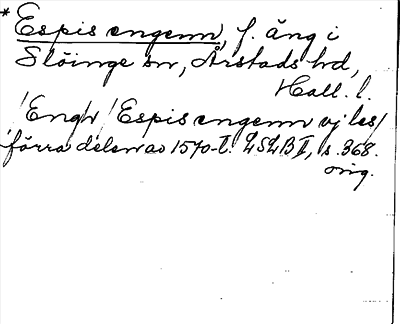 * Espis engenn, f. äng i
Slöinge sn, Årstads hd,
Hall. l.
/Engh/ Espis engenn vj les/
förra delen av 1570-t. LSLB II, s. 368.
orig.